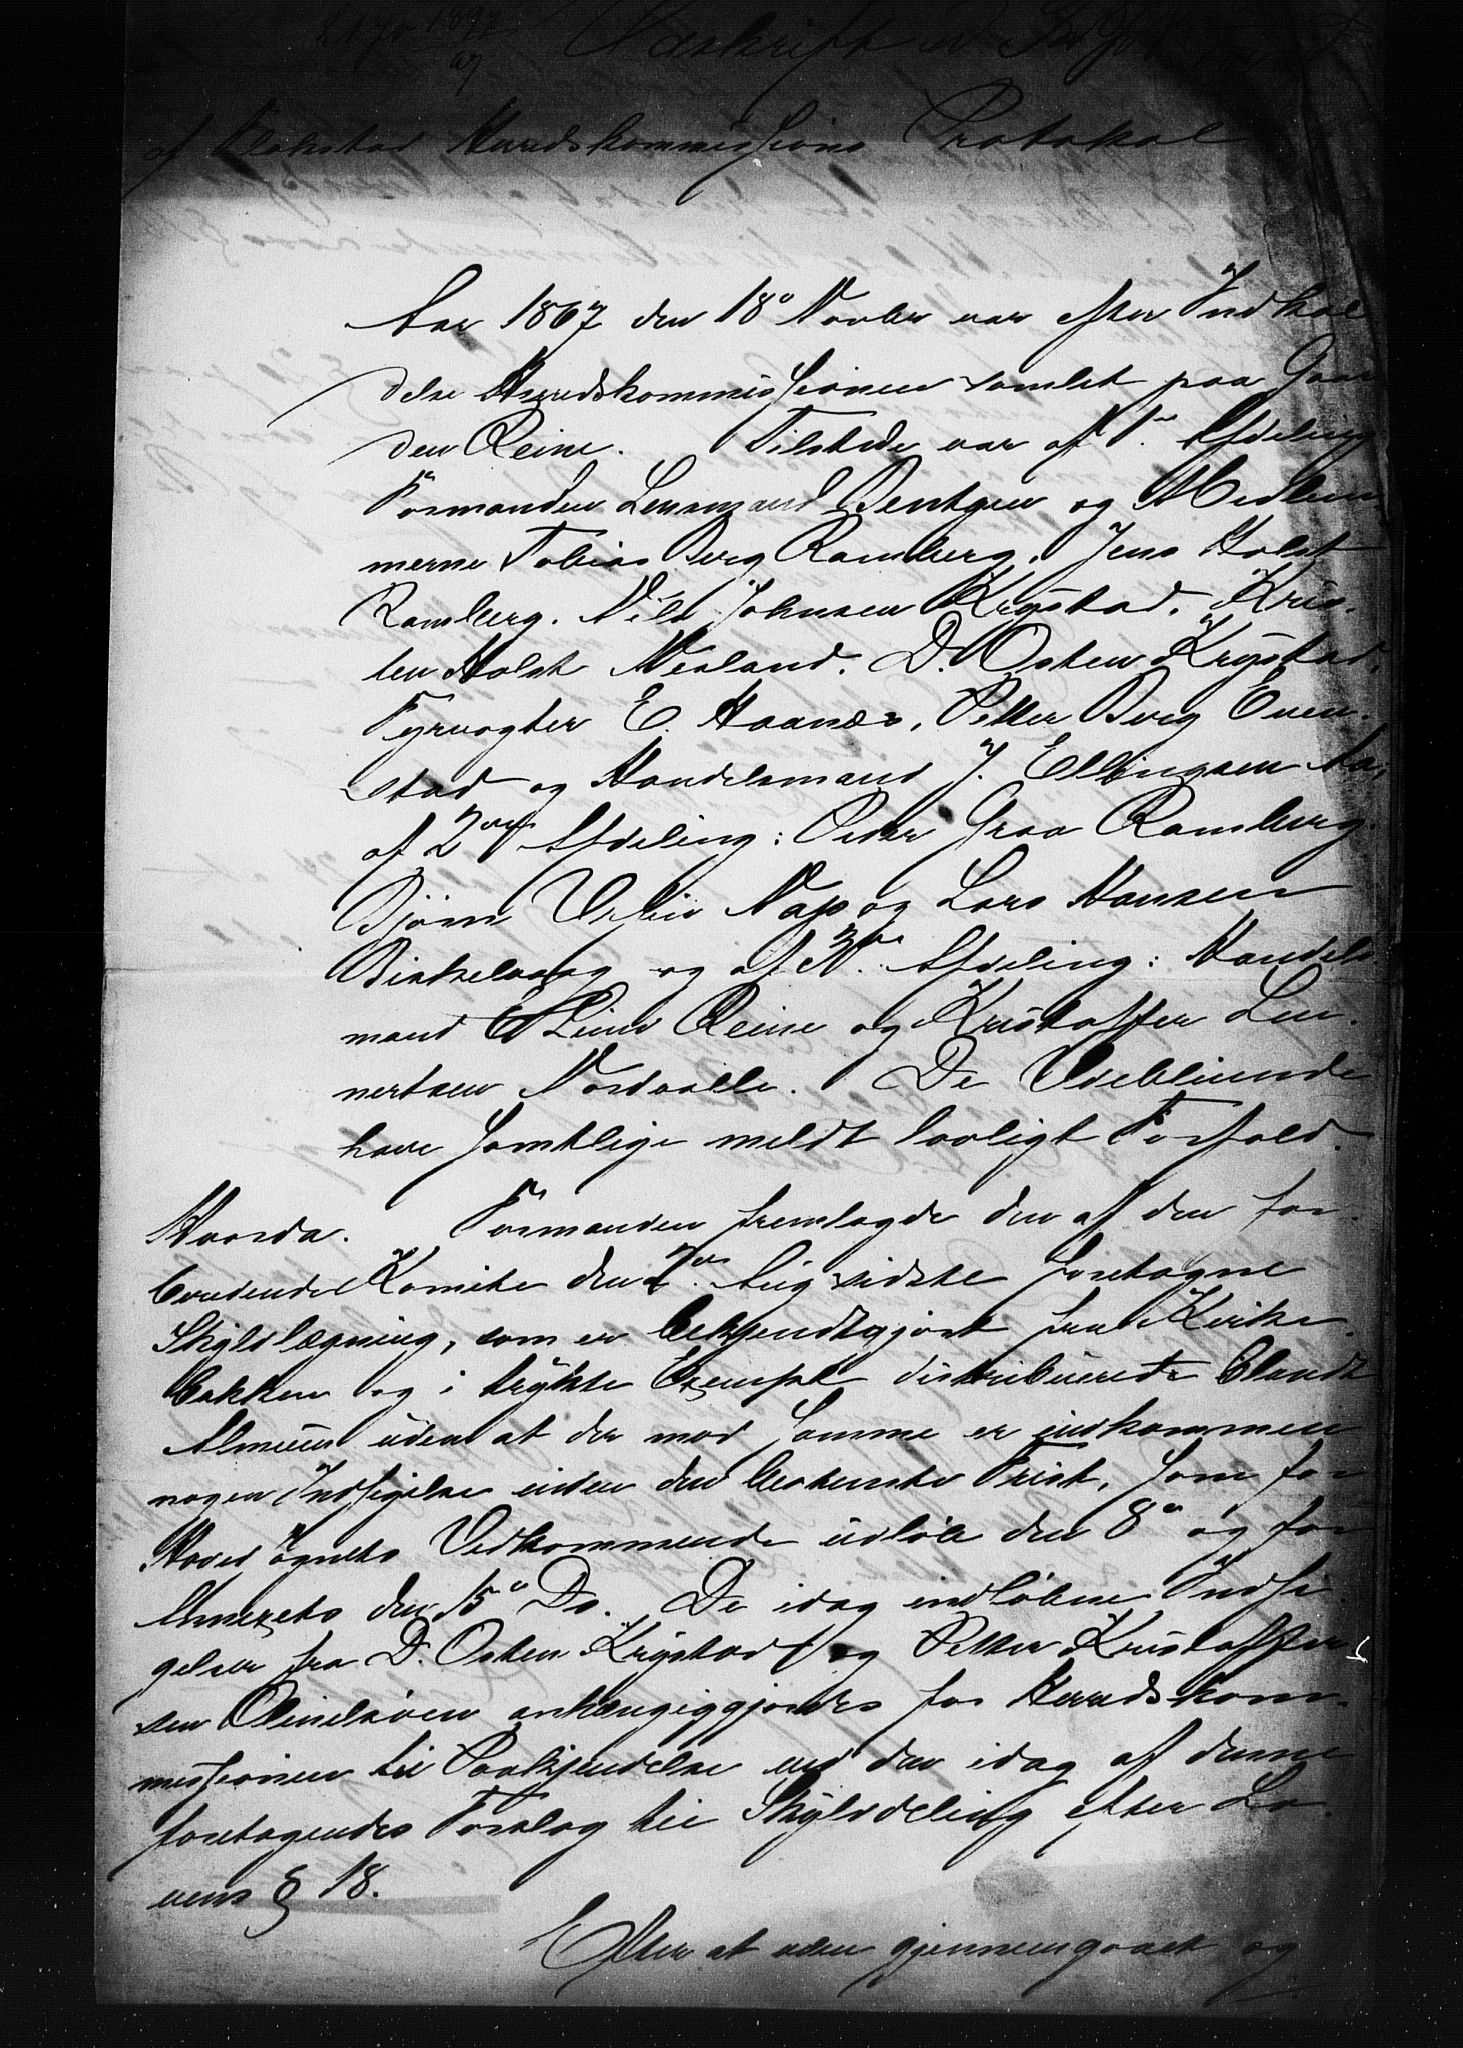 1897
af
af Flakstad Herredskommissions Protokol
Aar 1867 den 18de Novber var efter Indkal
delse Herredskommissionen samlet paa Gaar
den Reine. Tilstede var af 1ste Afdeling
Formanden Bentzen og Medlem
merne Tobias Berg Ramberg. Jens Holst
Ramberg. Nils Johnsen Krystad. Kris-
ten Holst Nesland. D. Osten Krystad,
Fyrvogter E. Haanæs, Petter Berg Even-
stad og Handelsmand J. Ellingsen Aa,
af 2den Afdeling: Peder Graa Ramberg.
Bjørn Nap og Lars Hansen
Birkelvaag og af 3die Afdeling: Handels
mand Reine og Kristoffer Len-
nertsen Nordvalle. De Udeblivende
have samtlige meldt lovligt Forfald.
Hvorda. Formanden fremlagde den af den for-
beredende Komite den 7de Aug sidste foretagne
Skyldlægning, som er bekjendtgjort fra Kirke-
bakken og i trykte Exempl distribuerede blandt
Almuen uden at der mod samme er indkommen
nogen Indsigelse inden den bestemte Frist, som for
Hoved Sognets Vedkommende udløb den 8de og for
Annexets den 15de Ds. De idag indløbne Indsi-
gelser fra D. Osten Krystad og Petter Kristoffer
sen anhængiggjordes for Herredskom-
missionen til Paakjendelse ved den idag af denne
foretagendes Forslag til Skylddeling efter Lo-
vens § 18.
Efter at være gjennemgaaet og